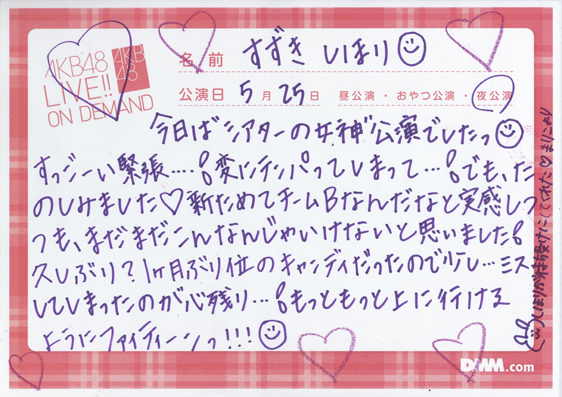 AKB48
LIVE!!
ON DEMAND
AKB
48
名前 すずき しほり
公演日 5月25日 昼公演・おやつ公演・夜公演
今日は"シアターの女神"公演でしたっ
すっごーい緊張....変にテンパってしまって...でも、た
のしみました♡新ためてチームBなんだなと実感しつ
つも、まだまだこんなんじゃいけないと思いました
久しぶり?1ヶ月ぶり位のキャンディだったので少し...ミス
してしまったのが心残り...もっともっと上に行ける
ようにファイティーンっ!!!
しほりが待受けにしてくれた♡まりこより
DMM.com